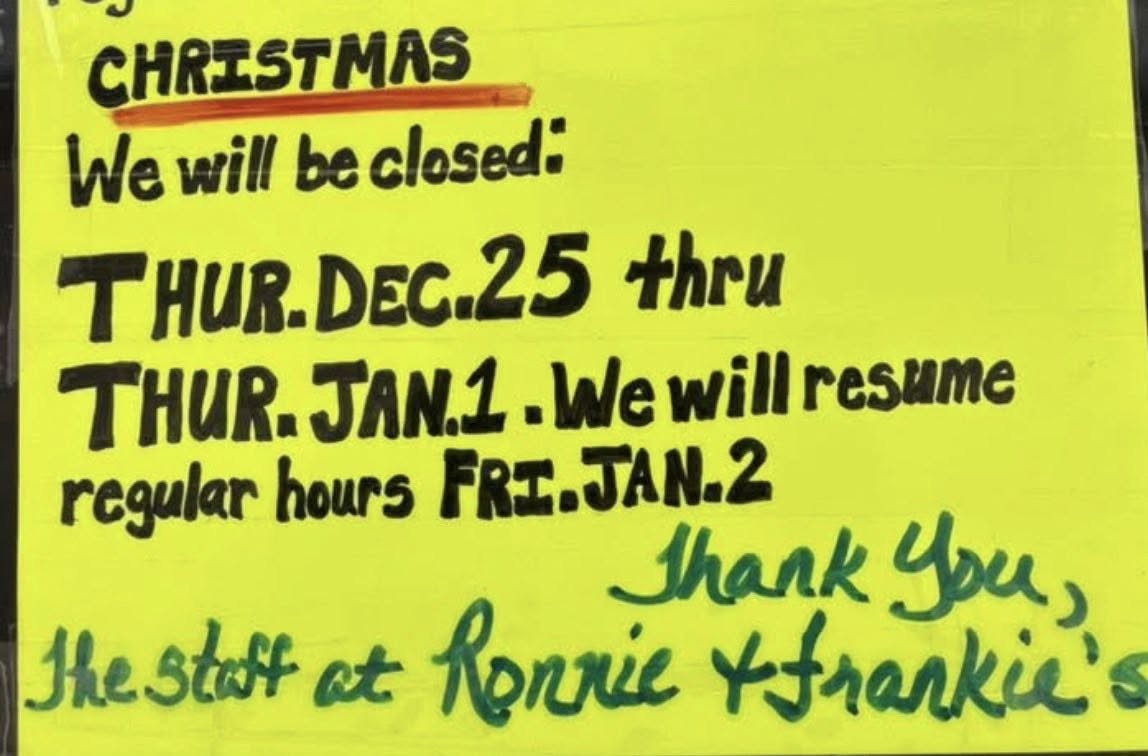 CHRISTMAS
We will be closed:
THUR. DEC. 25 thru
THUR. JAN. 1. We will resume
regular hours FRI. JAN. 2
Thank You,
The staff at Ronnie & Frankie's